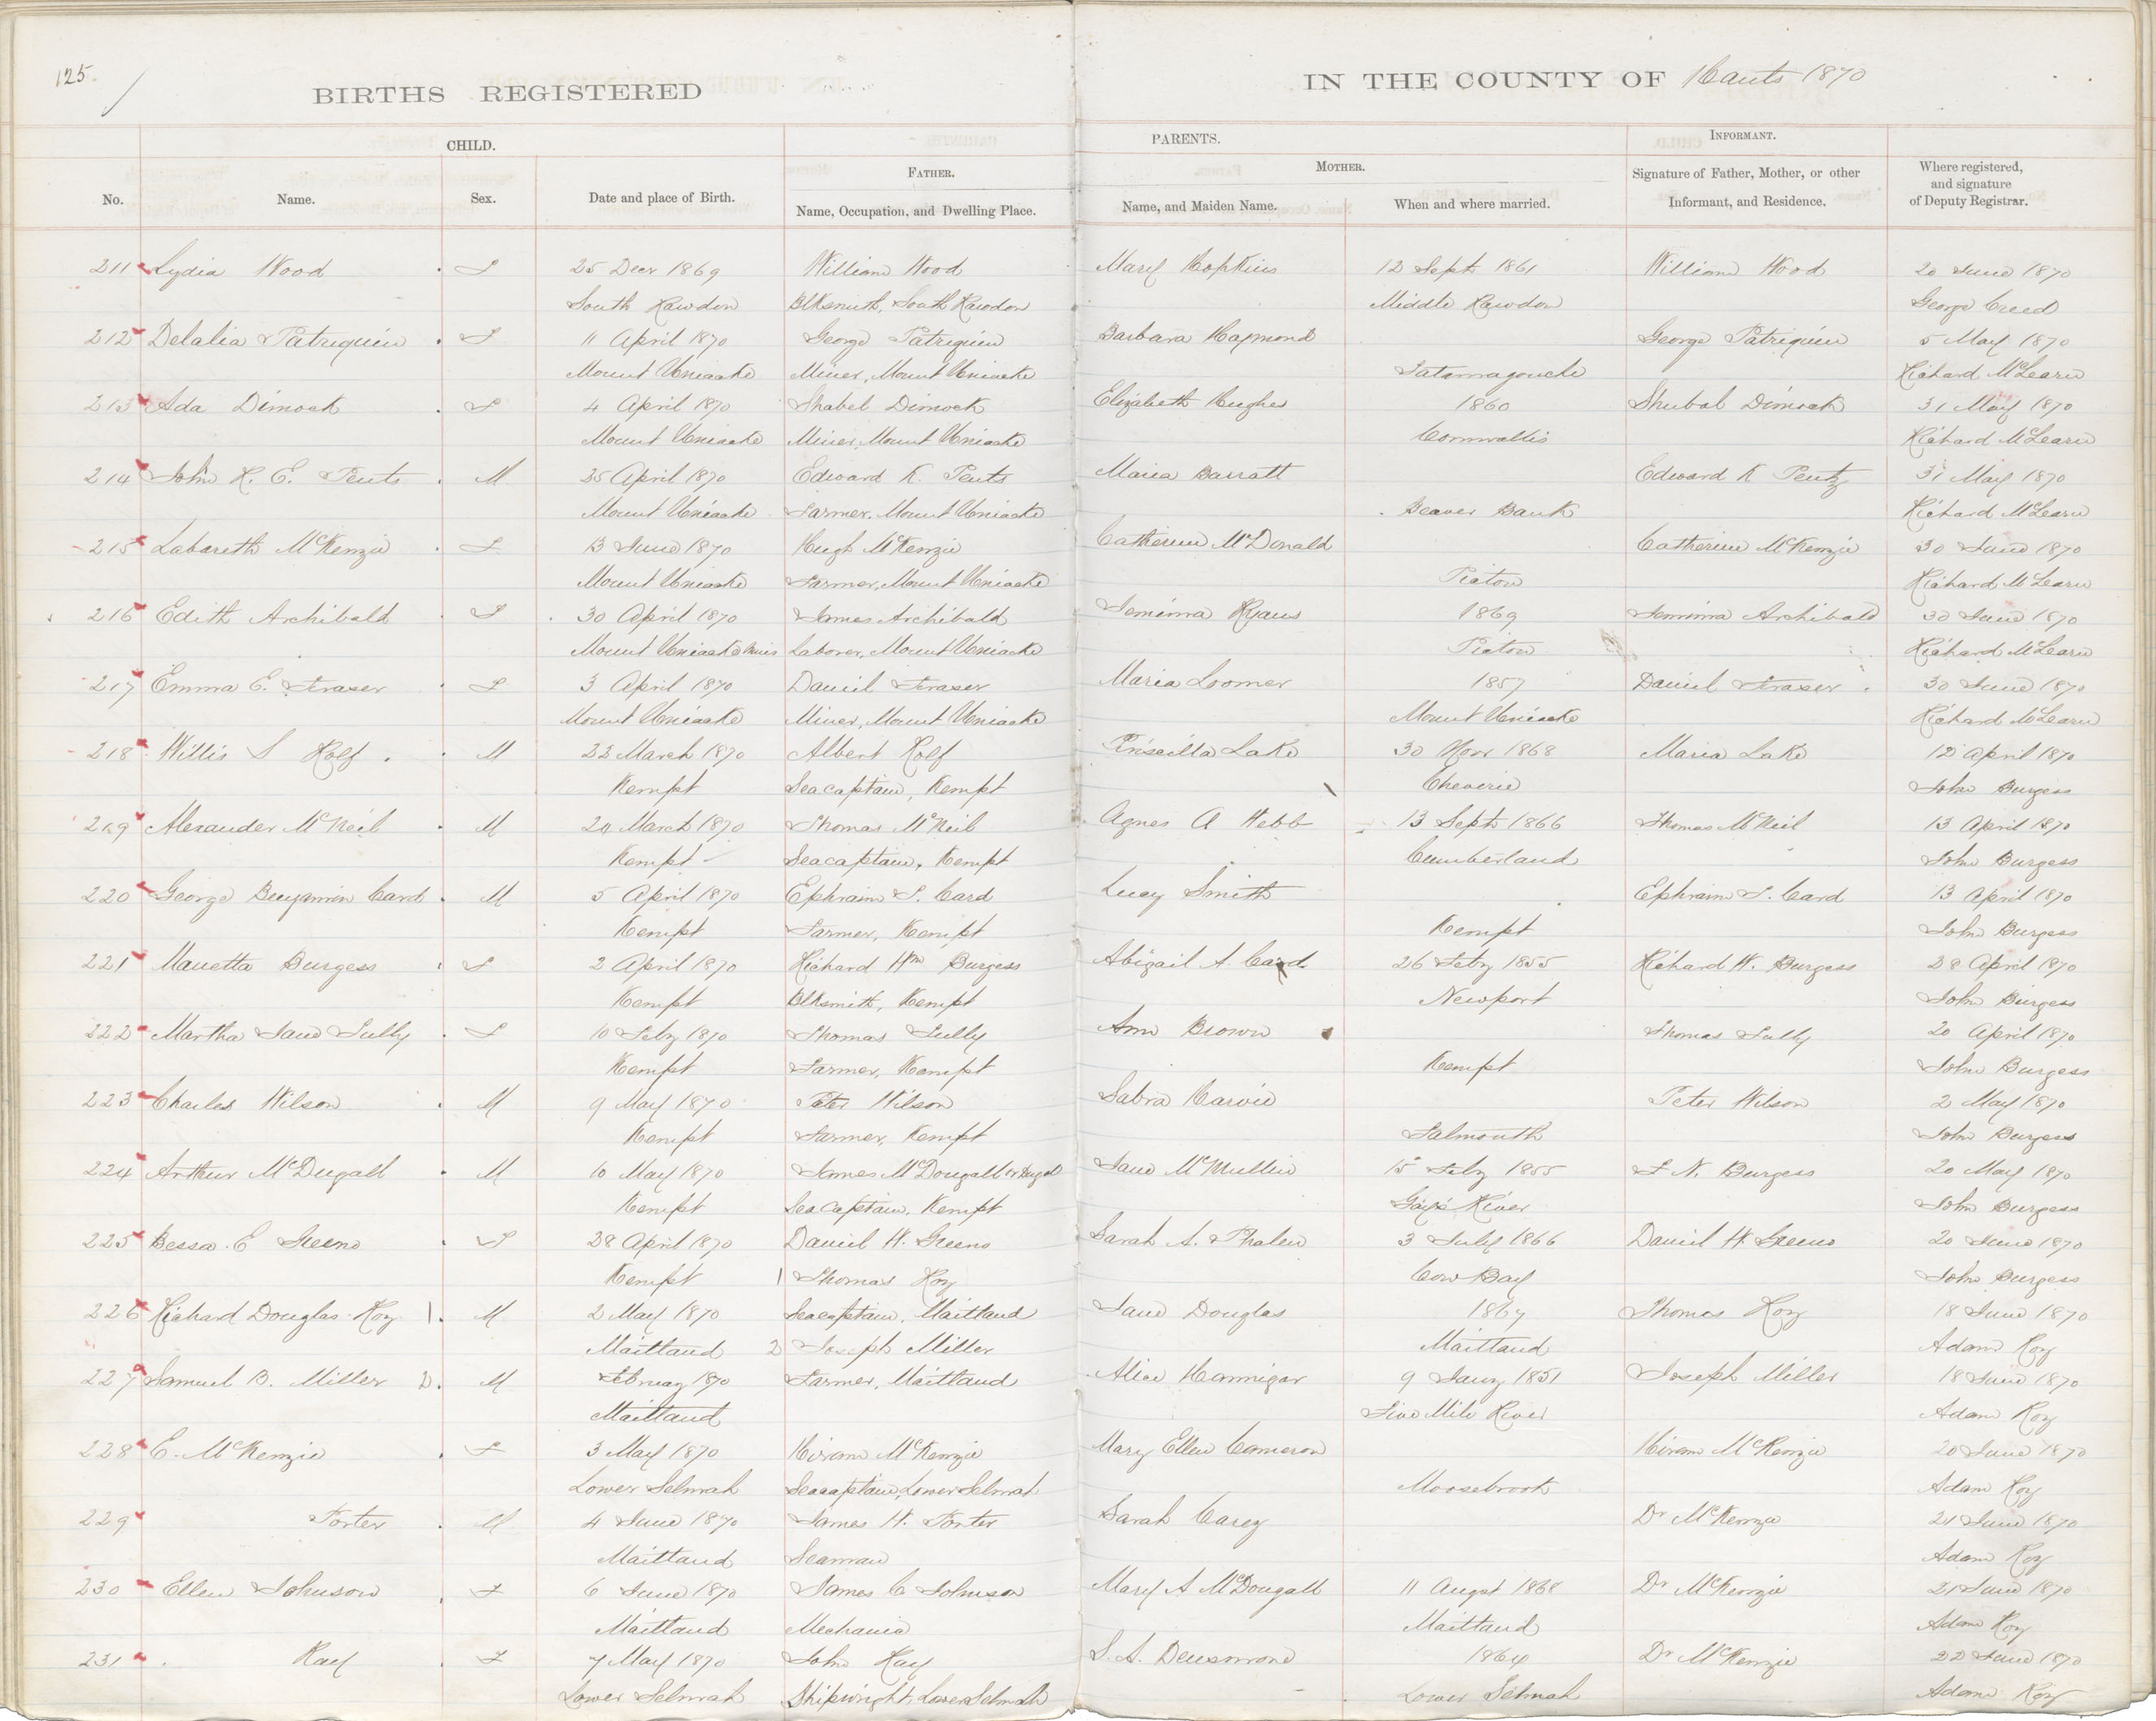 125.
BIRTHS REGISTERED IN THE COUNTY OF Hants 1870
CHILD. PARENTS. INFORMANT.
FATHER. MOTHER.
No. Name. Sex. Date and place of Birth. Name, Occupation, and Dwelling Place. Name, and Maiden Name. When and where married. Signature of Father, Mother, or other Informant, and Residence. Where registered, and signature of Deputy Registrar.
211 Lydia Wood F 25 Decr 1869 William Wood Mary Hopkins 12 Sept 1861 William Wood 20 June 1870
South Rawdon Blksmith, South Rawdon Middle Rawdon George Creed
212 Delalia Patriquin F 11 April 1870 George Patriquin Barbara Haymond George Patriquin 5 May 1870
Mount Uniacke Miner, Mount Uniacke Tatamagouche Richard McLearn
213 Ada Dimock F 4 April 1870 Shabel Dimock Elizabeth Hughes 1860 Shubal Dimock 31 May 1870
Mount Uniacke Miner, Mount Uniacke Cornwallis Richard McLearn
214 John H. E. Pents M 25 April 1870 Edward K. Pents Maria Barratt Edward K Pentz 31 May 1870
Mount Uniacke Farmer, Mount Uniacke Beaver Bank Richard McLearn
215 Labareth McKenzie F 13 June 1870 Hugh McKenzie Catherine McDonald Catherine McKenzie 30 June 1870
Mount Uniacke Farmer, Mount Uniacke Pictou Richard McLearn
216 Edith Archibald F 30 April 1870 James Archibald Jemima Ryans 1869 Jemima Archibald 30 June 1870
Mount Uniacke Mines Laborer, Mount Uniacke Pictou Richard McLearn
217 Emma E. Fraser F 3 April 1870 Daniel Fraser Maria Loomer 1857 Daniel Fraser 30 June 1870
Mount Uniacke Miner, Mount Uniacke Mount Uniacke Richard McLearn
218 Willis S Rolf M 22 March 1870 Albert Rolf Priscilla Lake 30 Novr 1868 Maria Lake 12 April 1870
Kempt Seacaptain, Kempt Cheverie John Burgess
219 Alexander McNeil M 24 March 1870 Thomas McNeil Agnes A Webb 13 Sept 1866 Thomas McNeil 13 April 1870
Kempt Seacaptain, Kempt Cumberland John Burgess
220 George Benjamin Card M 5 April 1870 Ephraim S. Card Lucy Smith Ephraim S. Card 13 April 1870
Kempt Farmer, Kempt Kempt John Burgess
221 Mauetta Burgess F 2 April 1870 Richard Wm Burgess Abigail A. Card 26 Feby 1855 Richard W. Burgess 28 April 1870
Kempt Blksmith, Kempt Newport John Burgess
222 Martha Jane Tully F 10 Feby 1870 Thomas Tully Ann Brown Thomas Tully 20 April 1870
Kempt Farmer, Kempt Kempt John Burgess
223 Charles Wilson M 9 May 1870 Peter Wilson Sabra Harvie Peter Wilson 2 May 1870
Kempt Farmer, Kempt Falmouth John Burgess
224 Arthur McDugall M 10 May 1870 James McDougall or Dugal Jane McMullin 15 Feby 1855 F. N. Burgess 20 May 1870
Kempt Seacaptain, Kempt Gay's River John Burgess
225 Bessa E Greeno F 28 April 1870 Daniel W. Greeno Sarah A. Phalen 3 July 1866 Daniel W. Greeno 20 June 1870
Kempt 1 Thomas Roy Cow Bay John Burgess
226 Richard Douglas Roy 1. M 2 May 1870 Seacaptain, Maitland Jane Douglas 1867 Thomas Roy 18 June 1870
Maitland 2 Joseph Miller Maitland Adam Roy
227 Samuel B. Miller 2. M February 1870 Farmer, Maitland Alice Hannigar 9 Jany 1851 Joseph Miller 18 June 1870
Maitland Five Mile River Adam Roy
228 E. McKenzie F 3 May 1870 Hiram McKenzie Mary Ellen Cameron Hiram McKenzie 20 June 1870
Lower Selmah Seacaptain, Lower Selmah Moosebrook Adam Roy
229 Porter M 4 June 1870 James H. Porter Sarah Carey Dr McKenzie 21 June 1870
Maitland Seaman Adam Roy
230 Ellen Johnson F 6 June 1870 James C Johnson Mary A McDougall 11 Augst 1868 Dr McKenzie 21 June 1870
Maitland Mechanic Maitland Adam Roy
231 Ray F 7 May 1870 John Ray S. A. Densmond 1864 Dr McKenzie 22 June 1870
Lower Selmah Shipwright, Lower Selmah Lower Selmah Adam Roy